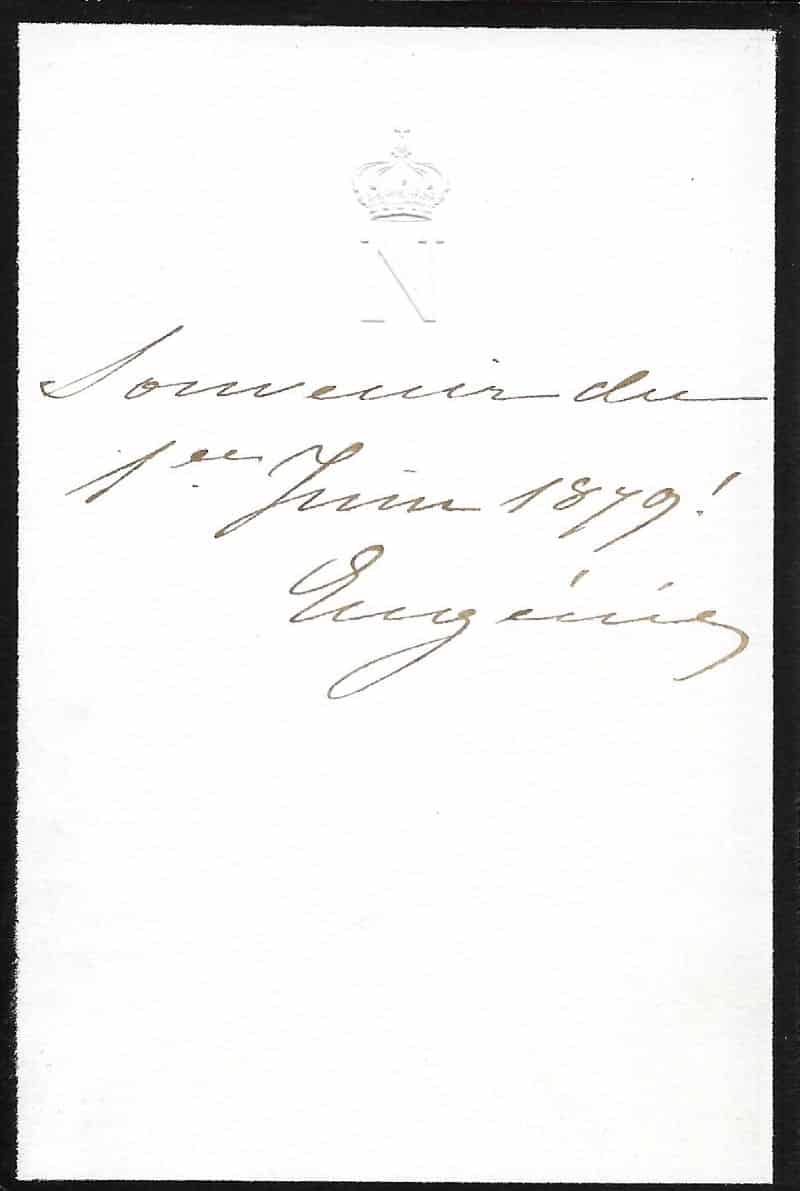 N
Souvenir du
1er Juin 1879!
Eugénie